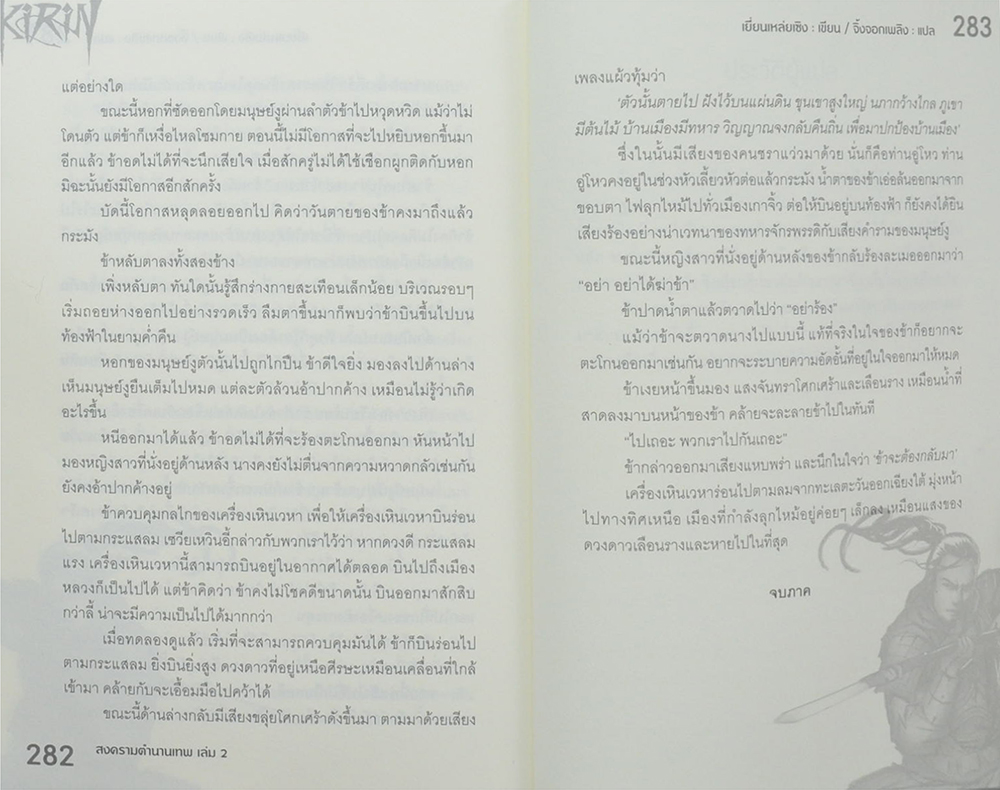 KIRIN
แต่อย่างใด
ขณะนี้หอกที่ซัดออกโดยมนุษย์งูผ่านลำตัวข้าไปหวุดหวิด แม้ว่าไม่
โดนตัว แต่ข้าก็เหงื่อไหลโซมกาย ตอนนี้ไม่มีโอกาสที่จะไปหยิบหอกขึ้นมา
อีกแล้ว ข้าอดไม่ได้ที่จะนึกเสียใจ เมื่อสักครู่ไม่ได้ใช้เชือกผูกติดกับหอก
มิฉะนั้นยังมีโอกาสอีกสักครั้ง
บัดนี้โอกาสหลุดลอยออกไป คิดว่าวันตายของข้าคงมาถึงแล้ว
กระมัง
ข้าหลับตาลงทั้งสองข้าง
เพิ่งหลับตา ทันใดนั้นรู้สึกร่างกายสะเทือนเล็กน้อย บริเวณรอบๆ
เริ่มถอยห่างออกไปอย่างรวดเร็ว ลืมตาขึ้นมาก็พบว่าข้าบินขึ้นไปบน
ท้องฟ้าในยามค่ำคืน
หอกของมนุษย์งูตัวนั้นไปถูกไกปืน ข้าดีใจยิ่ง มองลงไปด้านล่าง
เห็นมนุษย์งูยืนเต็มไปหมด แต่ละตัวล้วนอ้าปากค้าง เหมือนไม่รู้ว่าเกิด
อะไรขึ้น
หนีออกมาได้แล้ว ข้าอดไม่ได้ที่จะร้องตะโกนออกมา หันหน้าไป
มองหญิงสาวที่นั่งอยู่ด้านหลัง นางคงยังไม่ตื่นจากความหวาดกลัวเช่นกัน
ยังคงอ้าปากค้างอยู่
ข้าควบคุมกลไกของเครื่องเหินเวหา เพื่อให้เครื่องเหินเวหาบินร่อน
ไปตามกระแสลม เซวียเหวินอี้กล่าวกับพวกเราไว้ว่า หากดวงดี กระแสลม
แรง เครื่องเหินเวหานี้สามารถบินอยู่ในอากาศได้ตลอด บินไปถึงเมือง
หลวงก็เป็นไปได้ แต่ข้าคิดว่า ข้าคงไม่โชคดีขนาดนั้น บินออกมาสักสิบ
กว่าลี้ น่าจะมีความเป็นไปได้มากกว่า
เมื่อทดลองดูแล้ว เริ่มที่จะสามารถควบคุมมันได้ ข้าก็บินร่อนไป
ตามกระแสลม ยิ่งบินยิ่งสูง ดวงดาวที่อยู่เหนือศีรษะเหมือนเคลื่อนที่ใกล้
เข้ามา คล้ายกับจะเอื้อมมือไปคว้าได้
ขณะนี้ด้านล่างกลับมีเสียงขลุ่ยโศกเศร้าดังขึ้นมา ตามมาด้วยเสียง
282 สงครามตำนานเทพ เล่ม 2
เยี่ยนเหล่ยเซิง : เขียน / จิ้งจอกเพลิง : แปล 283
เพลงแผ้วทุ้มว่า
‘ตัวนั้นตายไป ฝังไว้บนแผ่นดิน ขุนเขาสูงใหญ่ นภากว้างไกล ภูเขา
มีต้นไม้ บ้านเมืองมีทหาร วิญญาณจงกลับคืนถิ่น เพื่อมาปกป้องบ้านเมือง’
ซึ่งในนั้นมีเสียงของคนชราแว่วมาด้วย นั่นก็คือท่านอู่โหว ท่าน
อู่โหวคงอยู่ในช่วงหัวเลี้ยวหัวต่อแล้วกระมัง น้ำตาของข้าเอ่อล้นออกมาจาก
ขอบตา ไฟลุกไหม้ไปทั่วเมืองเกาจิ้ว ต่อให้บินอยู่บนท้องฟ้า ก็ยังคงได้ยิน
เสียงร้องอย่างน่าเวทนาของทหารจักรพรรดิกับเสียงคำรามของมนุษย์งู
ขณะนี้หญิงสาวที่นั่งอยู่ด้านหลังของข้ากลับร้องละเมอออกมาว่า
“อย่า อย่าได้ฆ่าข้า”
ข้าปาดน้ำตาแล้วตวาดไปว่า “อย่าร้อง”
แม้ว่าข้าจะตวาดนางไปแบบนี้ แท้ที่จริงในใจของข้าก็อยากจะ
ตะโกนออกมาเช่นกัน อยากจะระบายความอัดอั้นที่อยู่ในใจออกมาให้หมด
ข้าเงยหน้าขึ้นมอง แสงจันทราโศกเศร้าและเลือนราง เหมือนน้ำที่
สาดลงมาบนหน้าของข้า คล้ายจะละลายข้าไปในทันที
“ไปเถอะ พวกเราไปกันเถอะ”
ข้ากล่าวออกมาเสียงแหบพร่า และนึกในใจว่า ‘ข้าจะต้องกลับมา’
เครื่องเหินเวหาร่อนไปตามลมจากทะเลตะวันออกเฉียงใต้ มุ่งหน้า
ไปทางทิศเหนือ เมืองที่กำลังลุกไหม้อยู่ค่อยๆ เล็กลง เหมือนแสงของ
ดวงดาวเลือนรางและหายไปในที่สุด
จบภาค